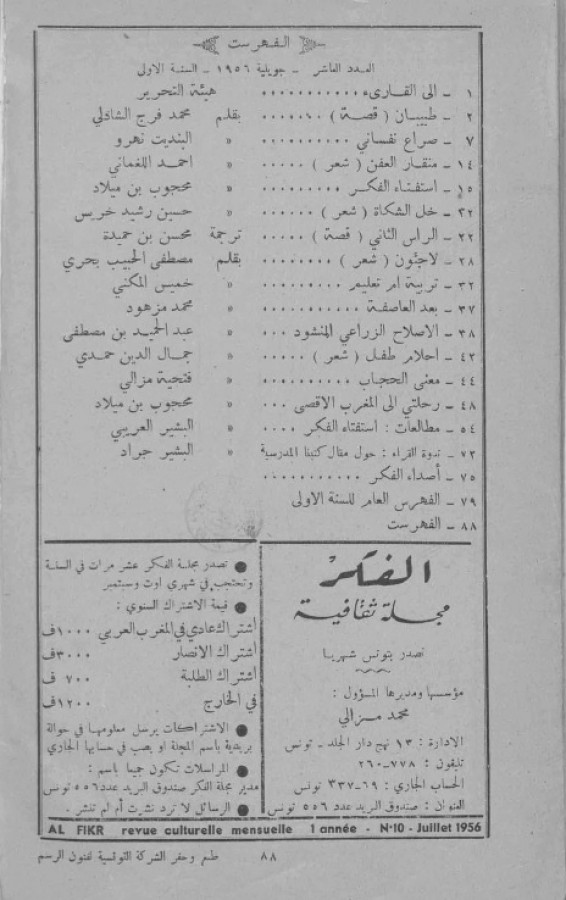 الفهرست
العدد العاشر - جويلية ١٩٥٦ - السنة الاولى
١ - الى القارىء ........... هيئة التحرير
٢ - طبيبان ( قصة ) ...... بقلم محمد فرج الشاذلي
٧ - صراع نفساني ........... « البنديت نهرو
١٤ - منقار العفن ( شعر ) ..... « احمد اللغماني
١٥ - استفتاء الفكر ......... « محجوب بن ميلاد
٢٢ - خل الشكاة ( شعر ) ..... « حسين رشيد خريس
٢٢ - الراس الثاني ( قصة ) ..... ترجمة محسن بن حميدة
٢٨ - لاجئون ( شعر ) ........ بقلم مصطفى الحبيب بحري
٣٢ - تربية ام تعليم .......... « خميس المكني
٣٧ - بعد العاصفة ........... « محمد مزهود
٣٨ - الاصلاح الزراعي المنشود ... « عبد الحميد بن مصطفى
٤٢ - احلام طفل ( شعر ) ..... « جمال الدين حمدي
٤٤ - معنى الحجاب .......... « فتحية مزالي
٤٨ - رحلتي الى المغرب الاقصى ... « محجوب بن ميلاد
٥٤ - مطالعات : استفتاء الفكر .... « البشير العريبي
٧٢ - ندوة القراء : حول مقال كتبنا المدرسية « البشير جراد
٧٥ - أصداء الفكر ...........
٧٩ - الفهرس العام للسنة الاولى
٨٨ - الفهرست
الفكر
مجلة ثقافية
تصدر بتونس شهريا
مؤسسها ومديرها المسؤول :
محمد مزالي
الادارة : ١٣ نهج دار الجلد - تونس
تليفون : ٧٧٨-٢٦٠
الحساب الجاري : ٦٩-٣٣٧ تونس
العنوان : صندوق البريد عدد ٥٥٦ تونس
● تصدر مجلة الفكر عشر مرات في السنة
وتحتجب في شهري اوت وسبتمبر
● قيمة الاشتراك السنوي :
اشتراك عادي في المغرب العربي ١٠٠٠ف
اشتراك الانصار ٣٠٠٠ف
اشتراك الطلبة ٧٠٠ ف
في الخارج ١٢٠٠ف
● الاشتراكات يرسل معلومها في حوالة
بريدية باسم المجلة او يصب في حسابها الجاري
● المراسلات تكون جميعا باسم :
مدير مجلة الفكر صندوق البريد عدد ٥٥٦ تونس
● الرسائل لا ترد نشرت أم لم تنشر .
AL FIKR revue culturelle mensuelle 1 année - N°10 - Juillet 1956
٨٨ طبع وحفر الشركة التونسية لفنون الرسم